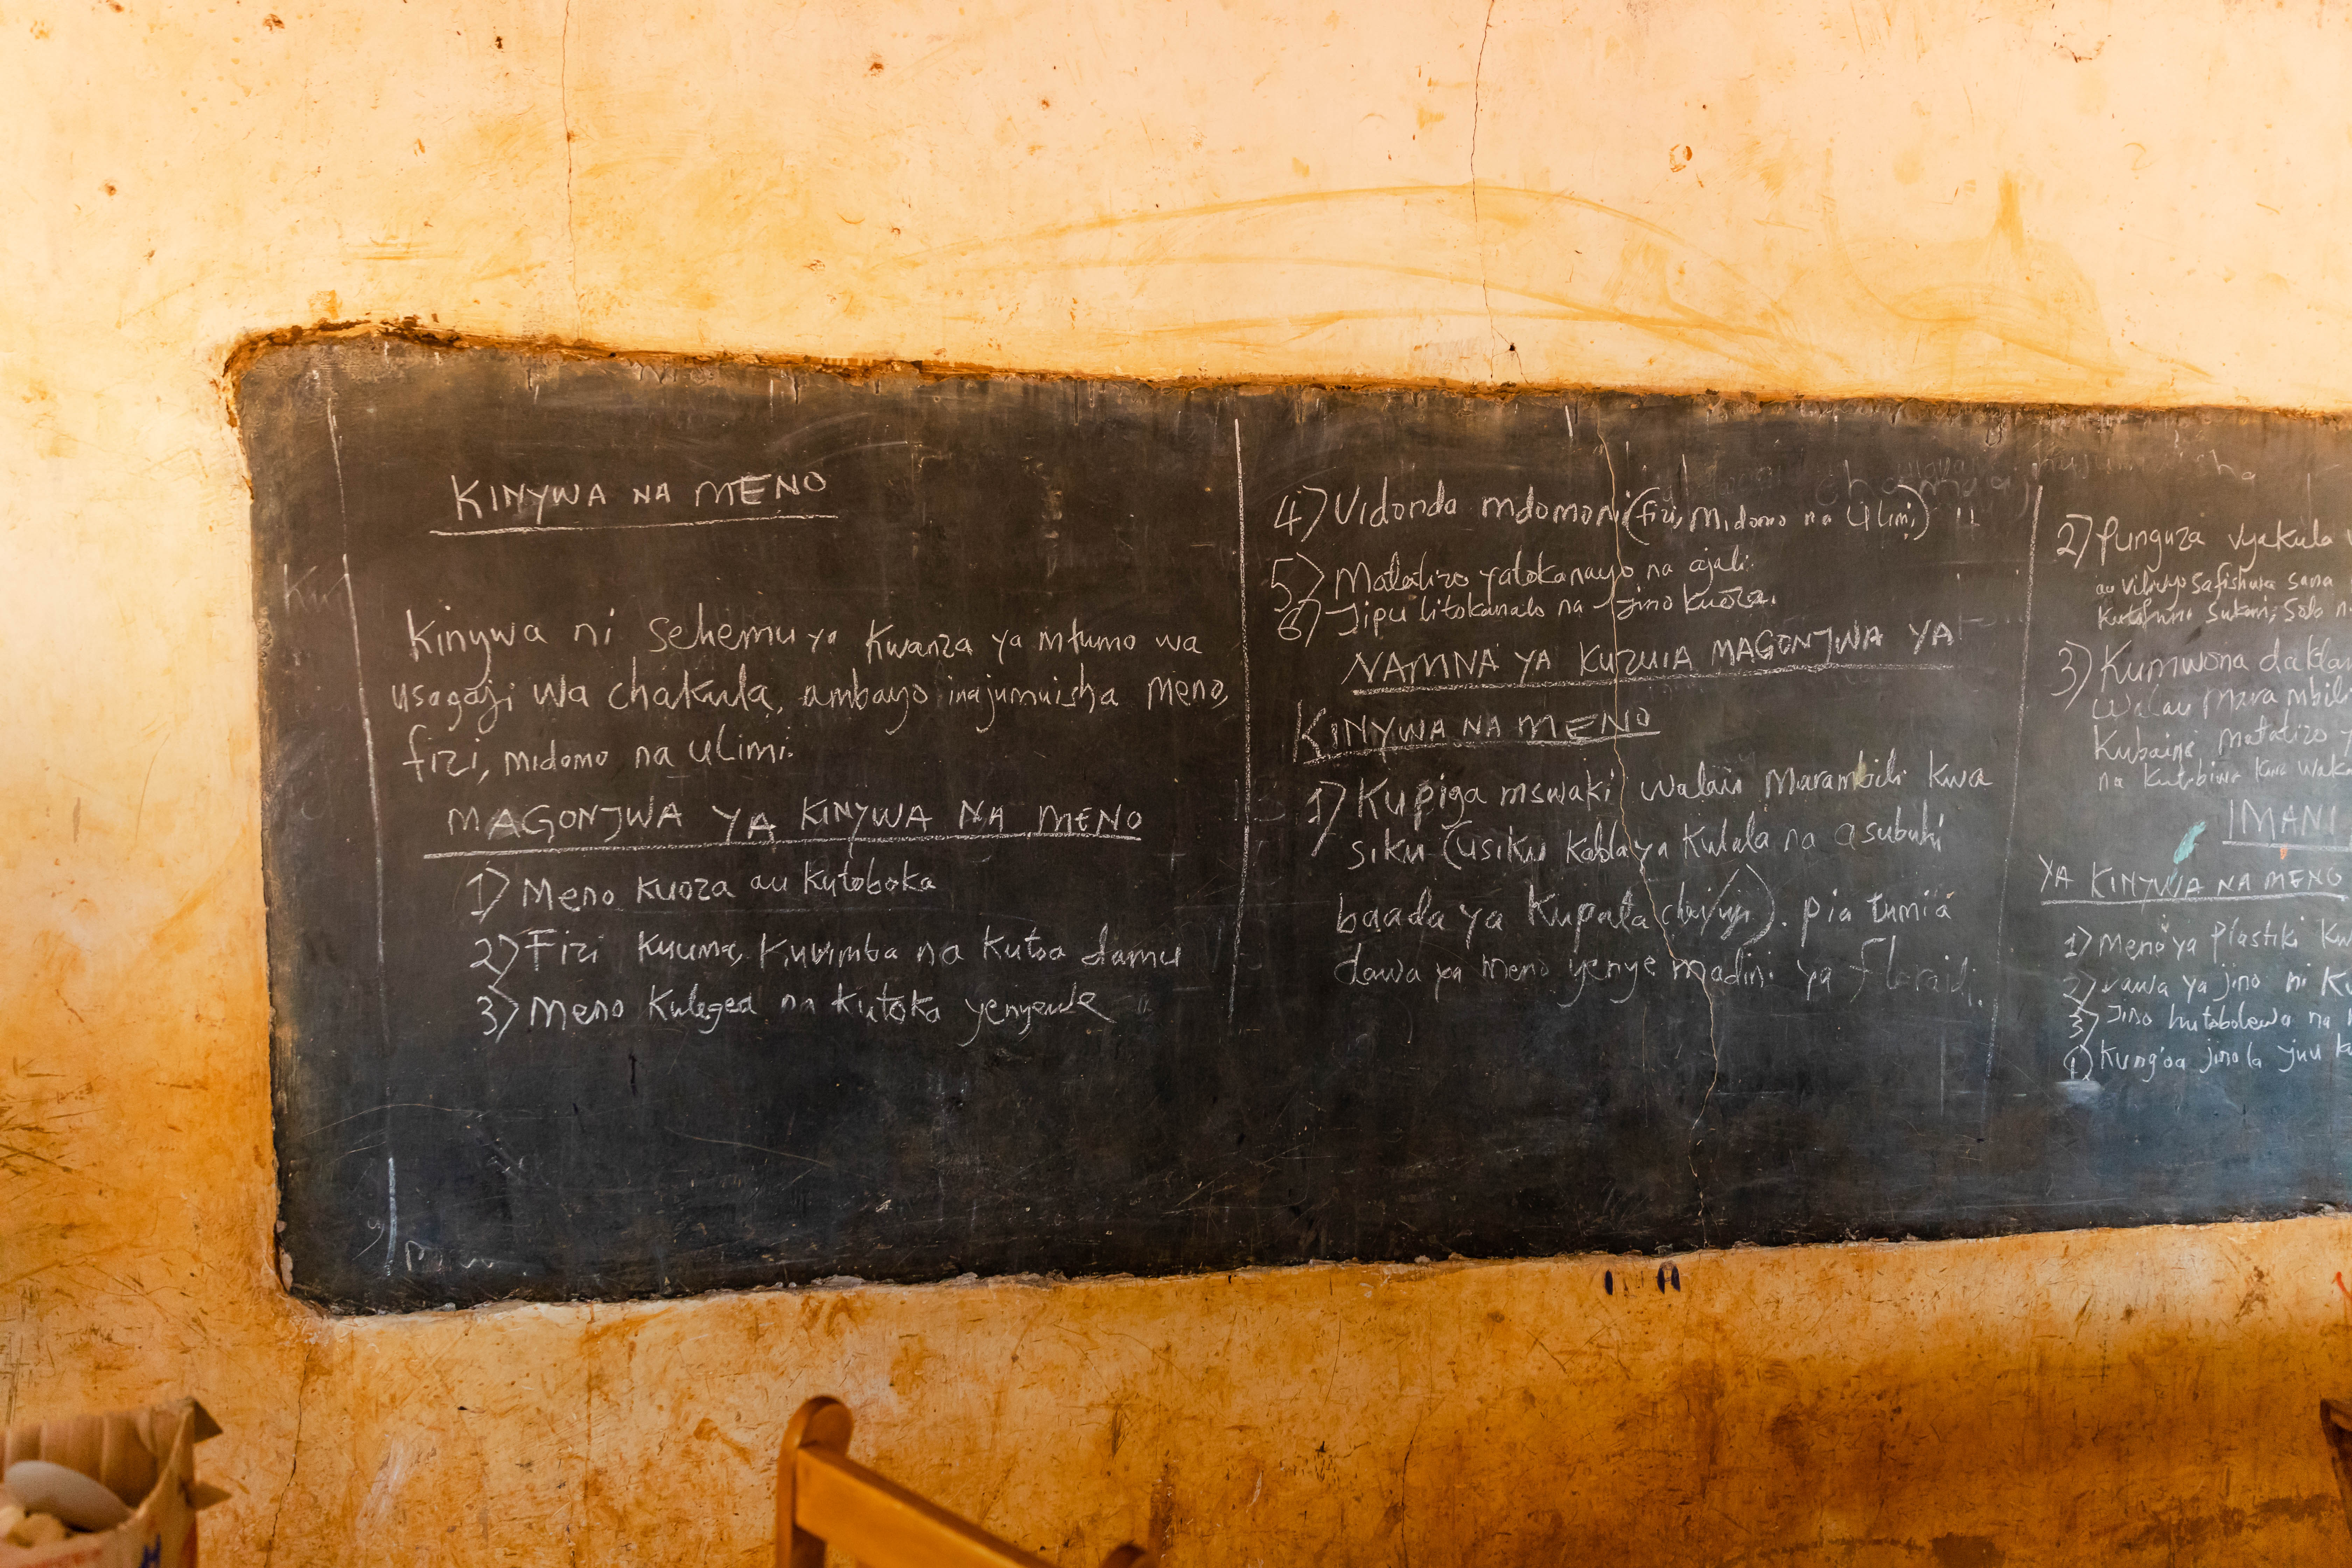 KINYWA NA MENO
Kinywa ni sehemu ya kwanza ya mfumo wa
usagaji wa chakula, ambayo inajumuisha meno,
fizi, midomo na ulimi.
MAGONJWA YA KINYWA NA MENO
1) Meno kuoza au kutoboka
2) Fizi kuuma, kuvimba na kutoa damu
3) Meno kulegea na kutoka yenyewe
4) Vidonda mdomoni (fizi, midomo na ulimi)
5) Matatizo yatokanayo na ajali.
6) Jipu litokanalo na jino kuoza.
NAMNA YA KUZUIA MAGONJWA YA
KINYWA NA MENO
1) Kupiga mswaki walau marambili kwa
siku (usiku kabla ya kulala na asubuhi
baada ya kupata chai/uji). pia tumia
dawa ya meno yenye madini ya floraidi.
2) Punguza vyakula
au safishwa sana
sukari, soda
3) Kumwona
walau mara
kubaini matatizo
na kutibiwa kwa
IMANI
YA KINYWA NA MENO
1) Meno ya plastiki
2) Dawa ya jino ni
3) Jino hutobolewa na
4) Kung'oa jino la juu